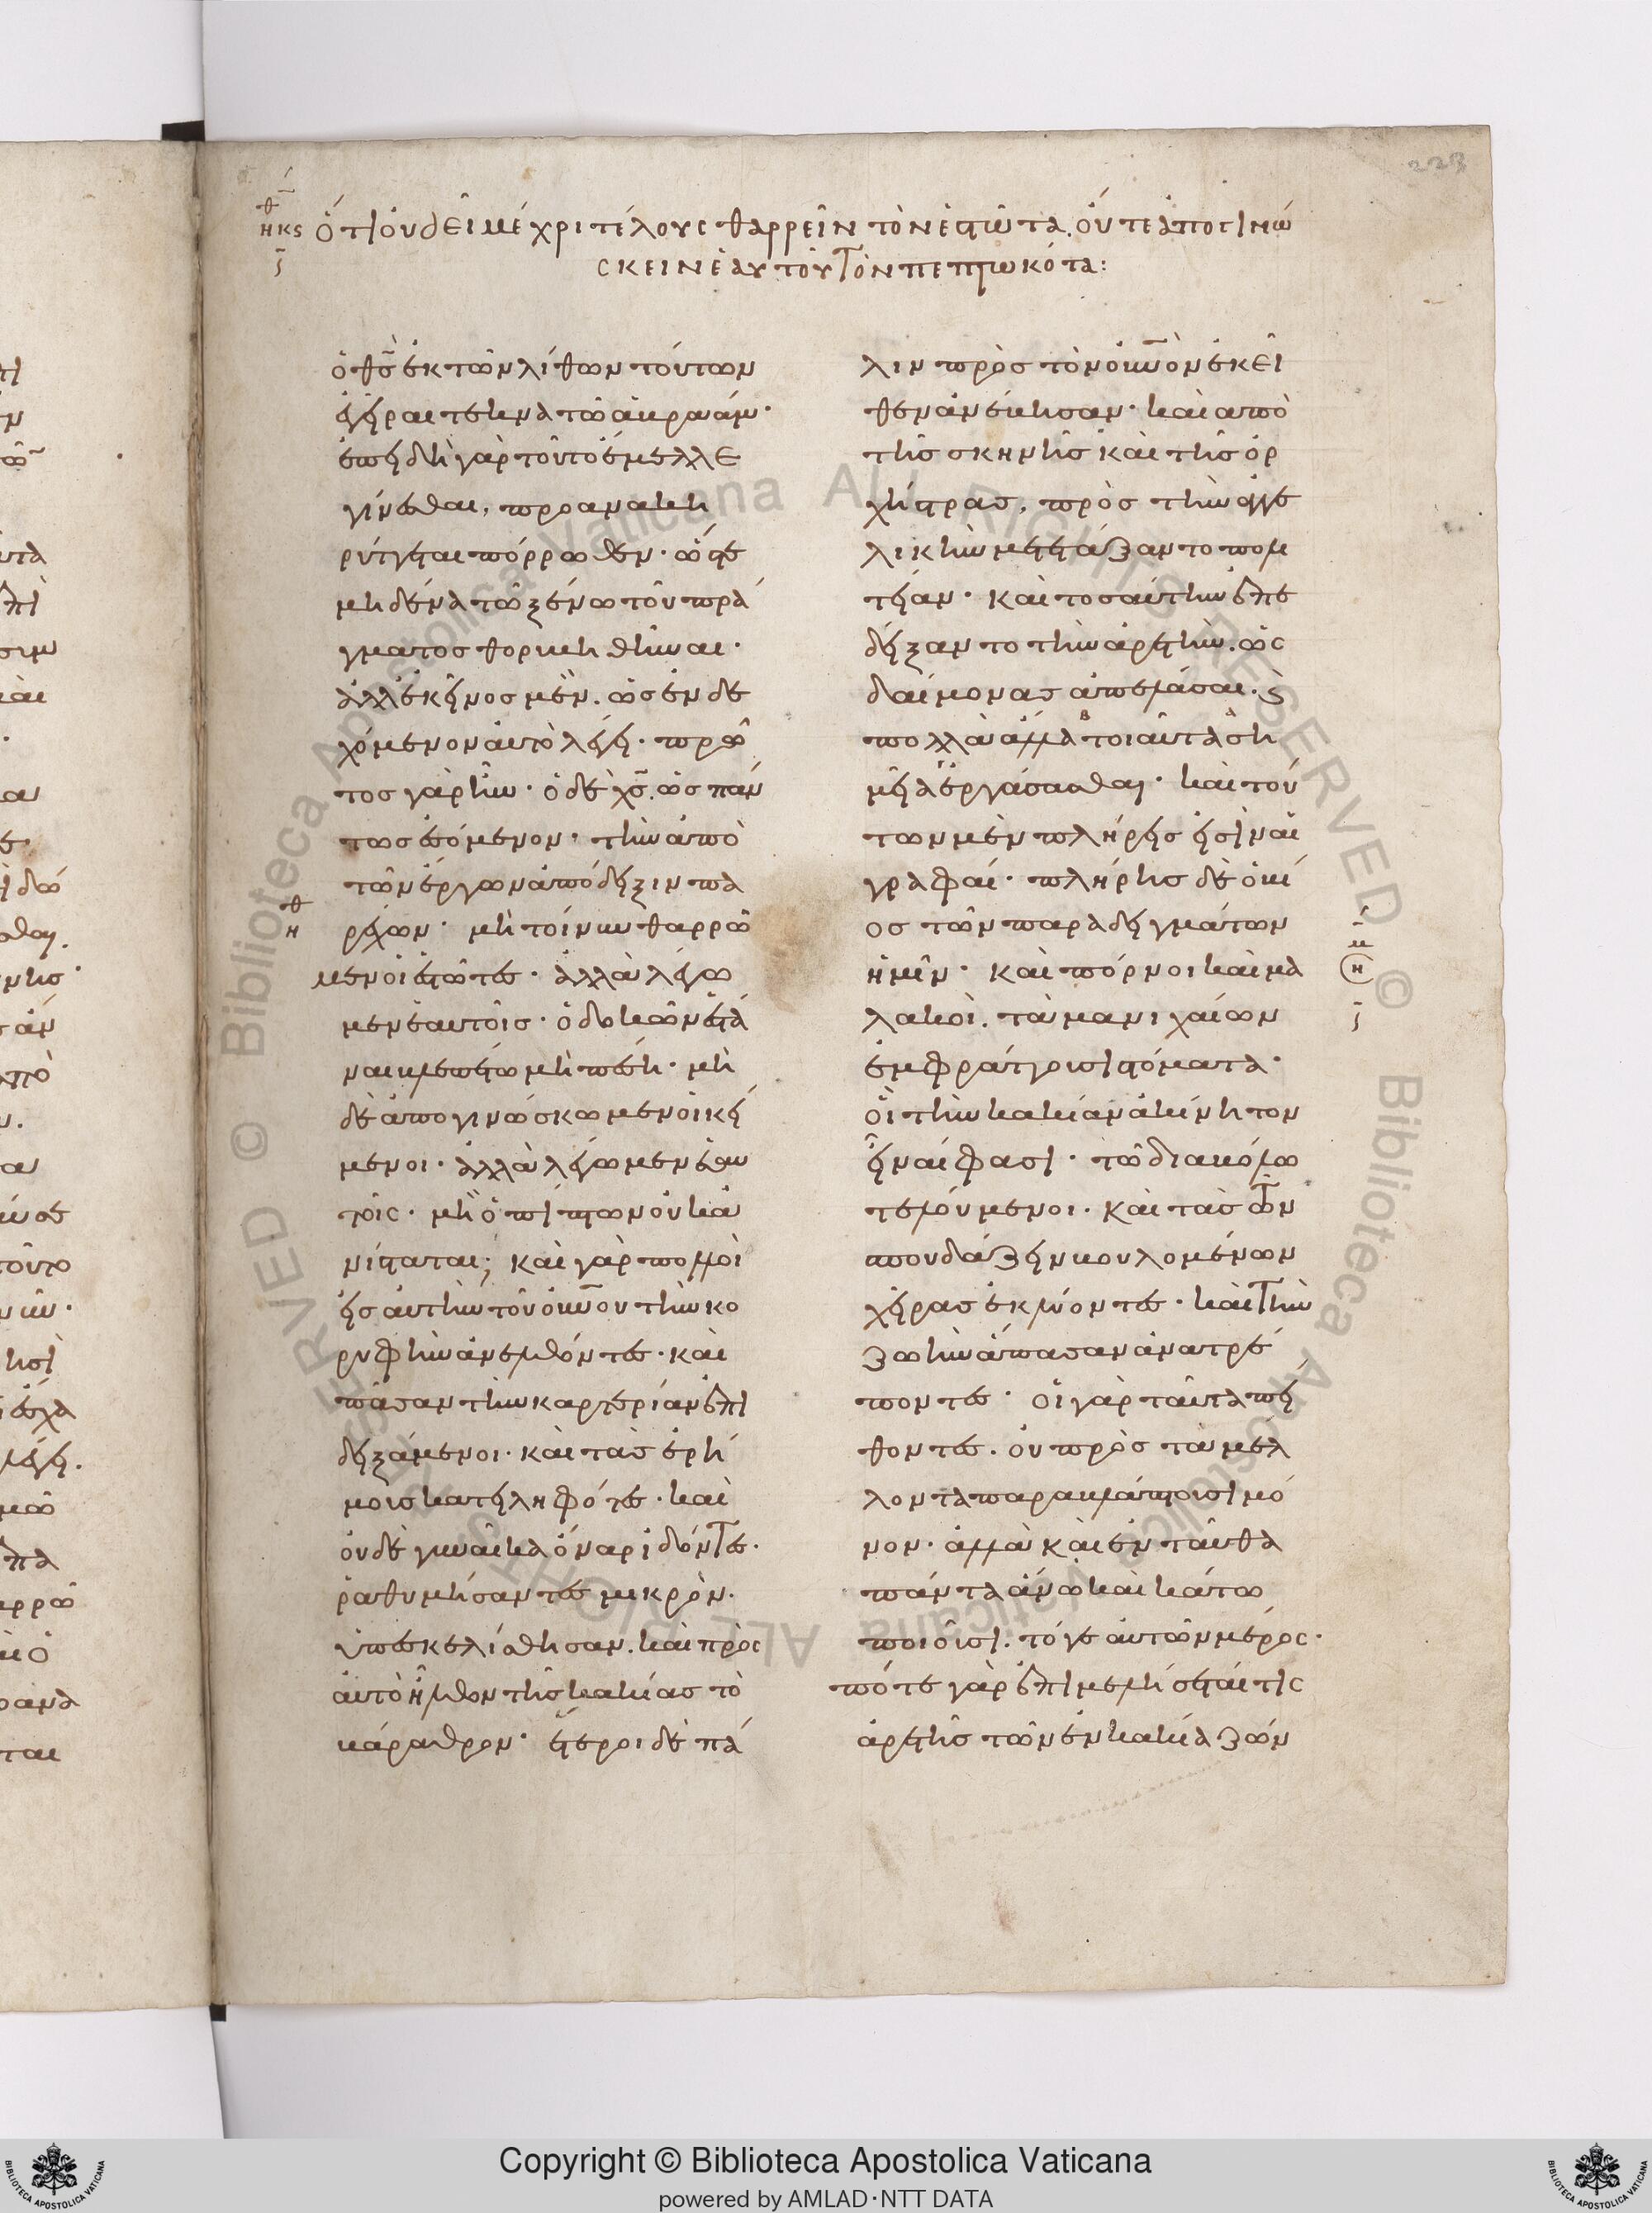 ὅτι οὐ δεῖ μέχρι τέλους θαρρεῖν τὸν ἑστῶτα. οὔτε ἀπογινώ
σκειν ἑαυτοῦ τὸν πεπτωκότα:
ὁ θ̅ς̅ ἐκ τῶν λίθων τούτων
ἐγεῖραι τέκνα τῶ ἀβραάμ·
ἐπειδὴ γὰρ τοῦτο ἔμελλε
γίνεσθαι, προανακη
ρύττεται πόρρωθεν· ὥστε
μηδένα τῶ ξένω τοῦ πρά
γματος θορυβηθῆναι·
ἀλλ' ἐκεῖνος μὲν. ὡς ἐνδε
χόμενον αὐτὸ λέγει· πρῶ
τος γὰρ ἦν· ὁ δὲ χ̅ς̅. ὡς πάν
τως ἐσόμενον· τὴν ἀπὸ
τῶν ἔργων ἀπόδειξιν πα
ρέχων· μὴ τοίνυν θαρρῶ
μεν οἱ ἑστῶτες· ἀλλὰ λέγω
μεν ἑαυτοῖς· ὁ δοκῶν ἑστά
ναι βλεπέτω μὴ πέση· μὴ
δὲ ἀπογινώσκωμεν οἱ κεί
μενοι· ἀλλὰ λέγωμεν ἑαυ
τοῖς· μὴ ὁ πίπτων οὐκ ἀ
νίσταται; καὶ γὰρ πολλοὶ
εἰς αὐτὴν τοῦ οὐ̅ν̅ου τὴν κο
ρυφὴν ἀνελθόντες· καὶ
πᾶσαν τὴν καρτερίαν ἐπι
δειξάμενοι· καὶ τὰς ἐρή
μους κατειληφότες· καὶ
οὐδὲ γυναῖκα ὄναρ ἰδόντες·
ῥαθυμήσαντες μικρὸν·
ὑπεσκελίσθησαν. καὶ πρὸς
αὐτὸ ἦλθον τῆς κακίας τὸ
βάραθρον· ἕτεροι δὲ πά
λιν πρὸς τὸν οὐ̅ν̅ὸν ἐκεῖ
θεν ἀνέβησαν· καὶ ἀπὸ
τῆς σκηνῆς καὶ τῆς ὀρ
χήστρας, πρὸς τὴν ἀγγε
λικὴν μετετάξαντο πολι
τείαν· καὶ τοσαύτην ἐπε
δείξαντο τὴν ἀρετὴν. ὡς
δαίμονας ἀπελάσαι. ϛ
πολλὰ ἄλλα τοιαῦτα ση
μεῖα ἐργάσασθαι· καὶ τού
των μὲν πλήρεις εἰσὶν αἱ
γραφαί· πλήρης δὲ ὁ βί
ος τῶν παραδειγμάτων
ἡμῖν· καὶ πόρνοι καὶ μα
λακοὶ. τὰ μανιχαίων
ἐμφράττουσι στόματα·
οἳ τὴν κακίαν ἀκίνητον
εἶναί φασι· τῶ διαβόλω
τελούμενοι. καὶ τὰς τῶν
σπουδάζειν βουλομένων
χεῖρας ἐκλύοντες· καὶ τὴν
ζωὴν ἅπασαν ἀνατρέ
ποντες· οἱ γὰρ ταῦτα πεί
θοντες. οὐ πρὸς τὰ μέλ
λοντα παραβλάπτουσι μό
νον· ἀλλὰ καὶ ἐνταῦθα
πάντα ἄνω καὶ κάτω
ποιοῦσι. τό γε αὐτῶν μέρος·
πότε γὰρ ἐπιμελήσεταί τις
ἀρετῆς τῶν ἐν κακία ζών
Copyright © Biblioteca Apostolica Vaticana
powered by AMLAD·NTT DATA